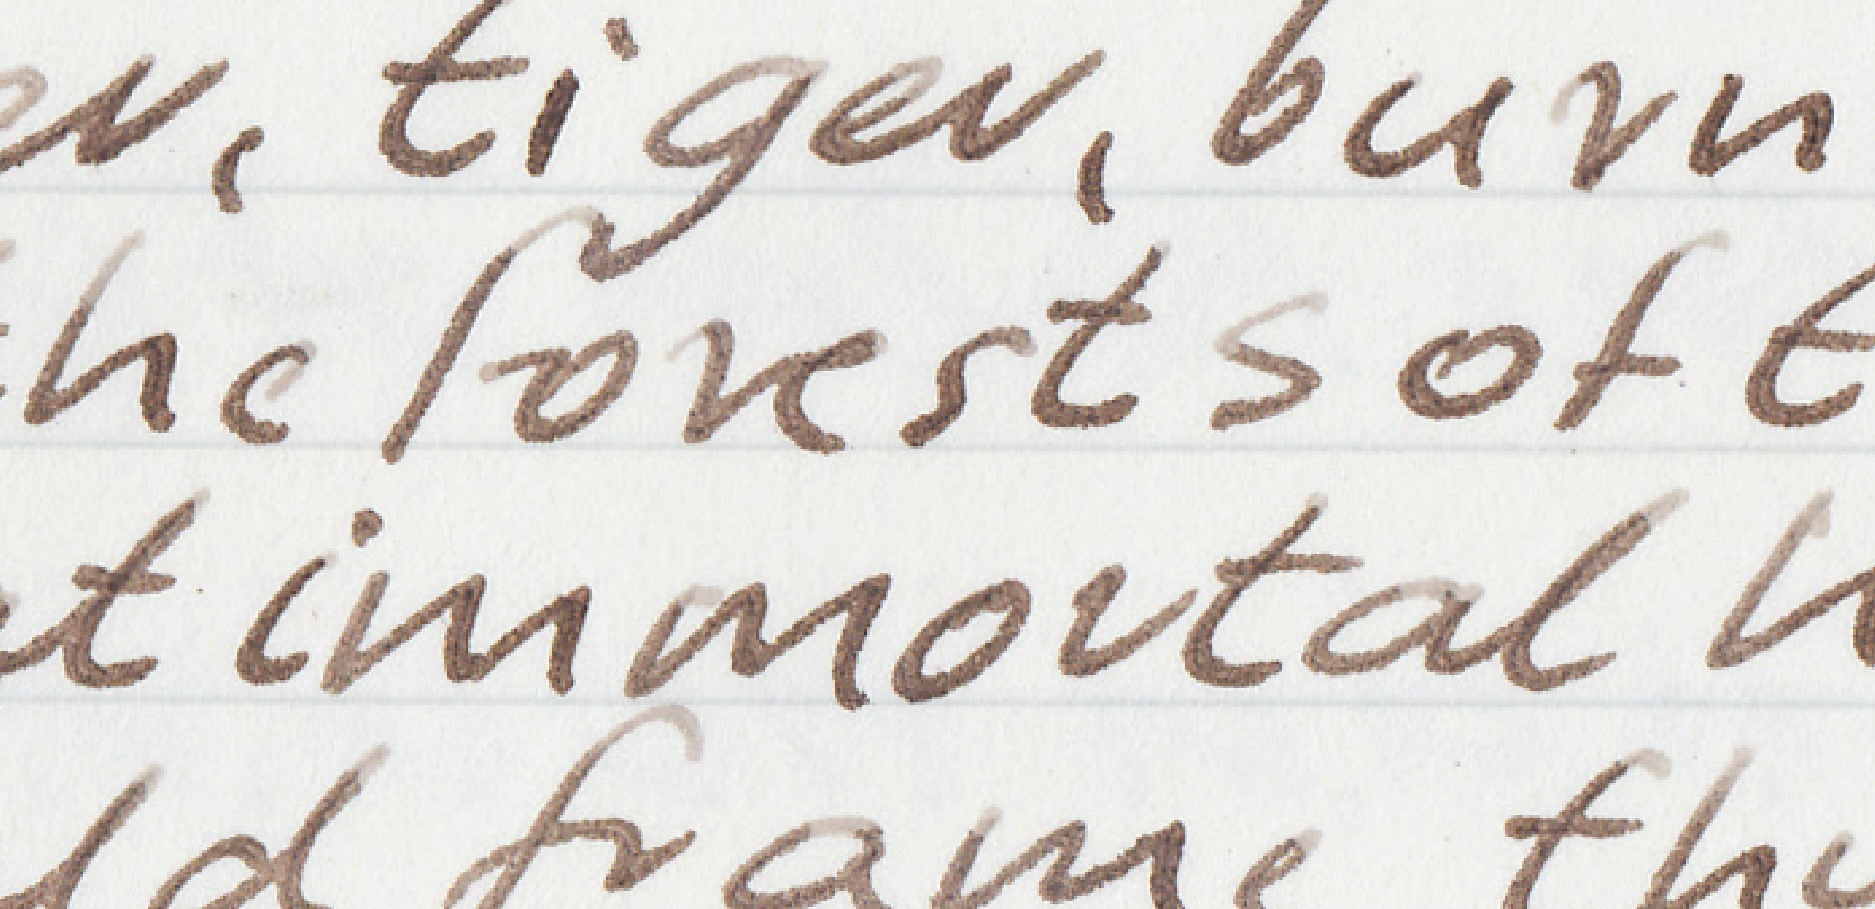 er, tiger, burn
he forests of t
t immortal h
ld frame thy